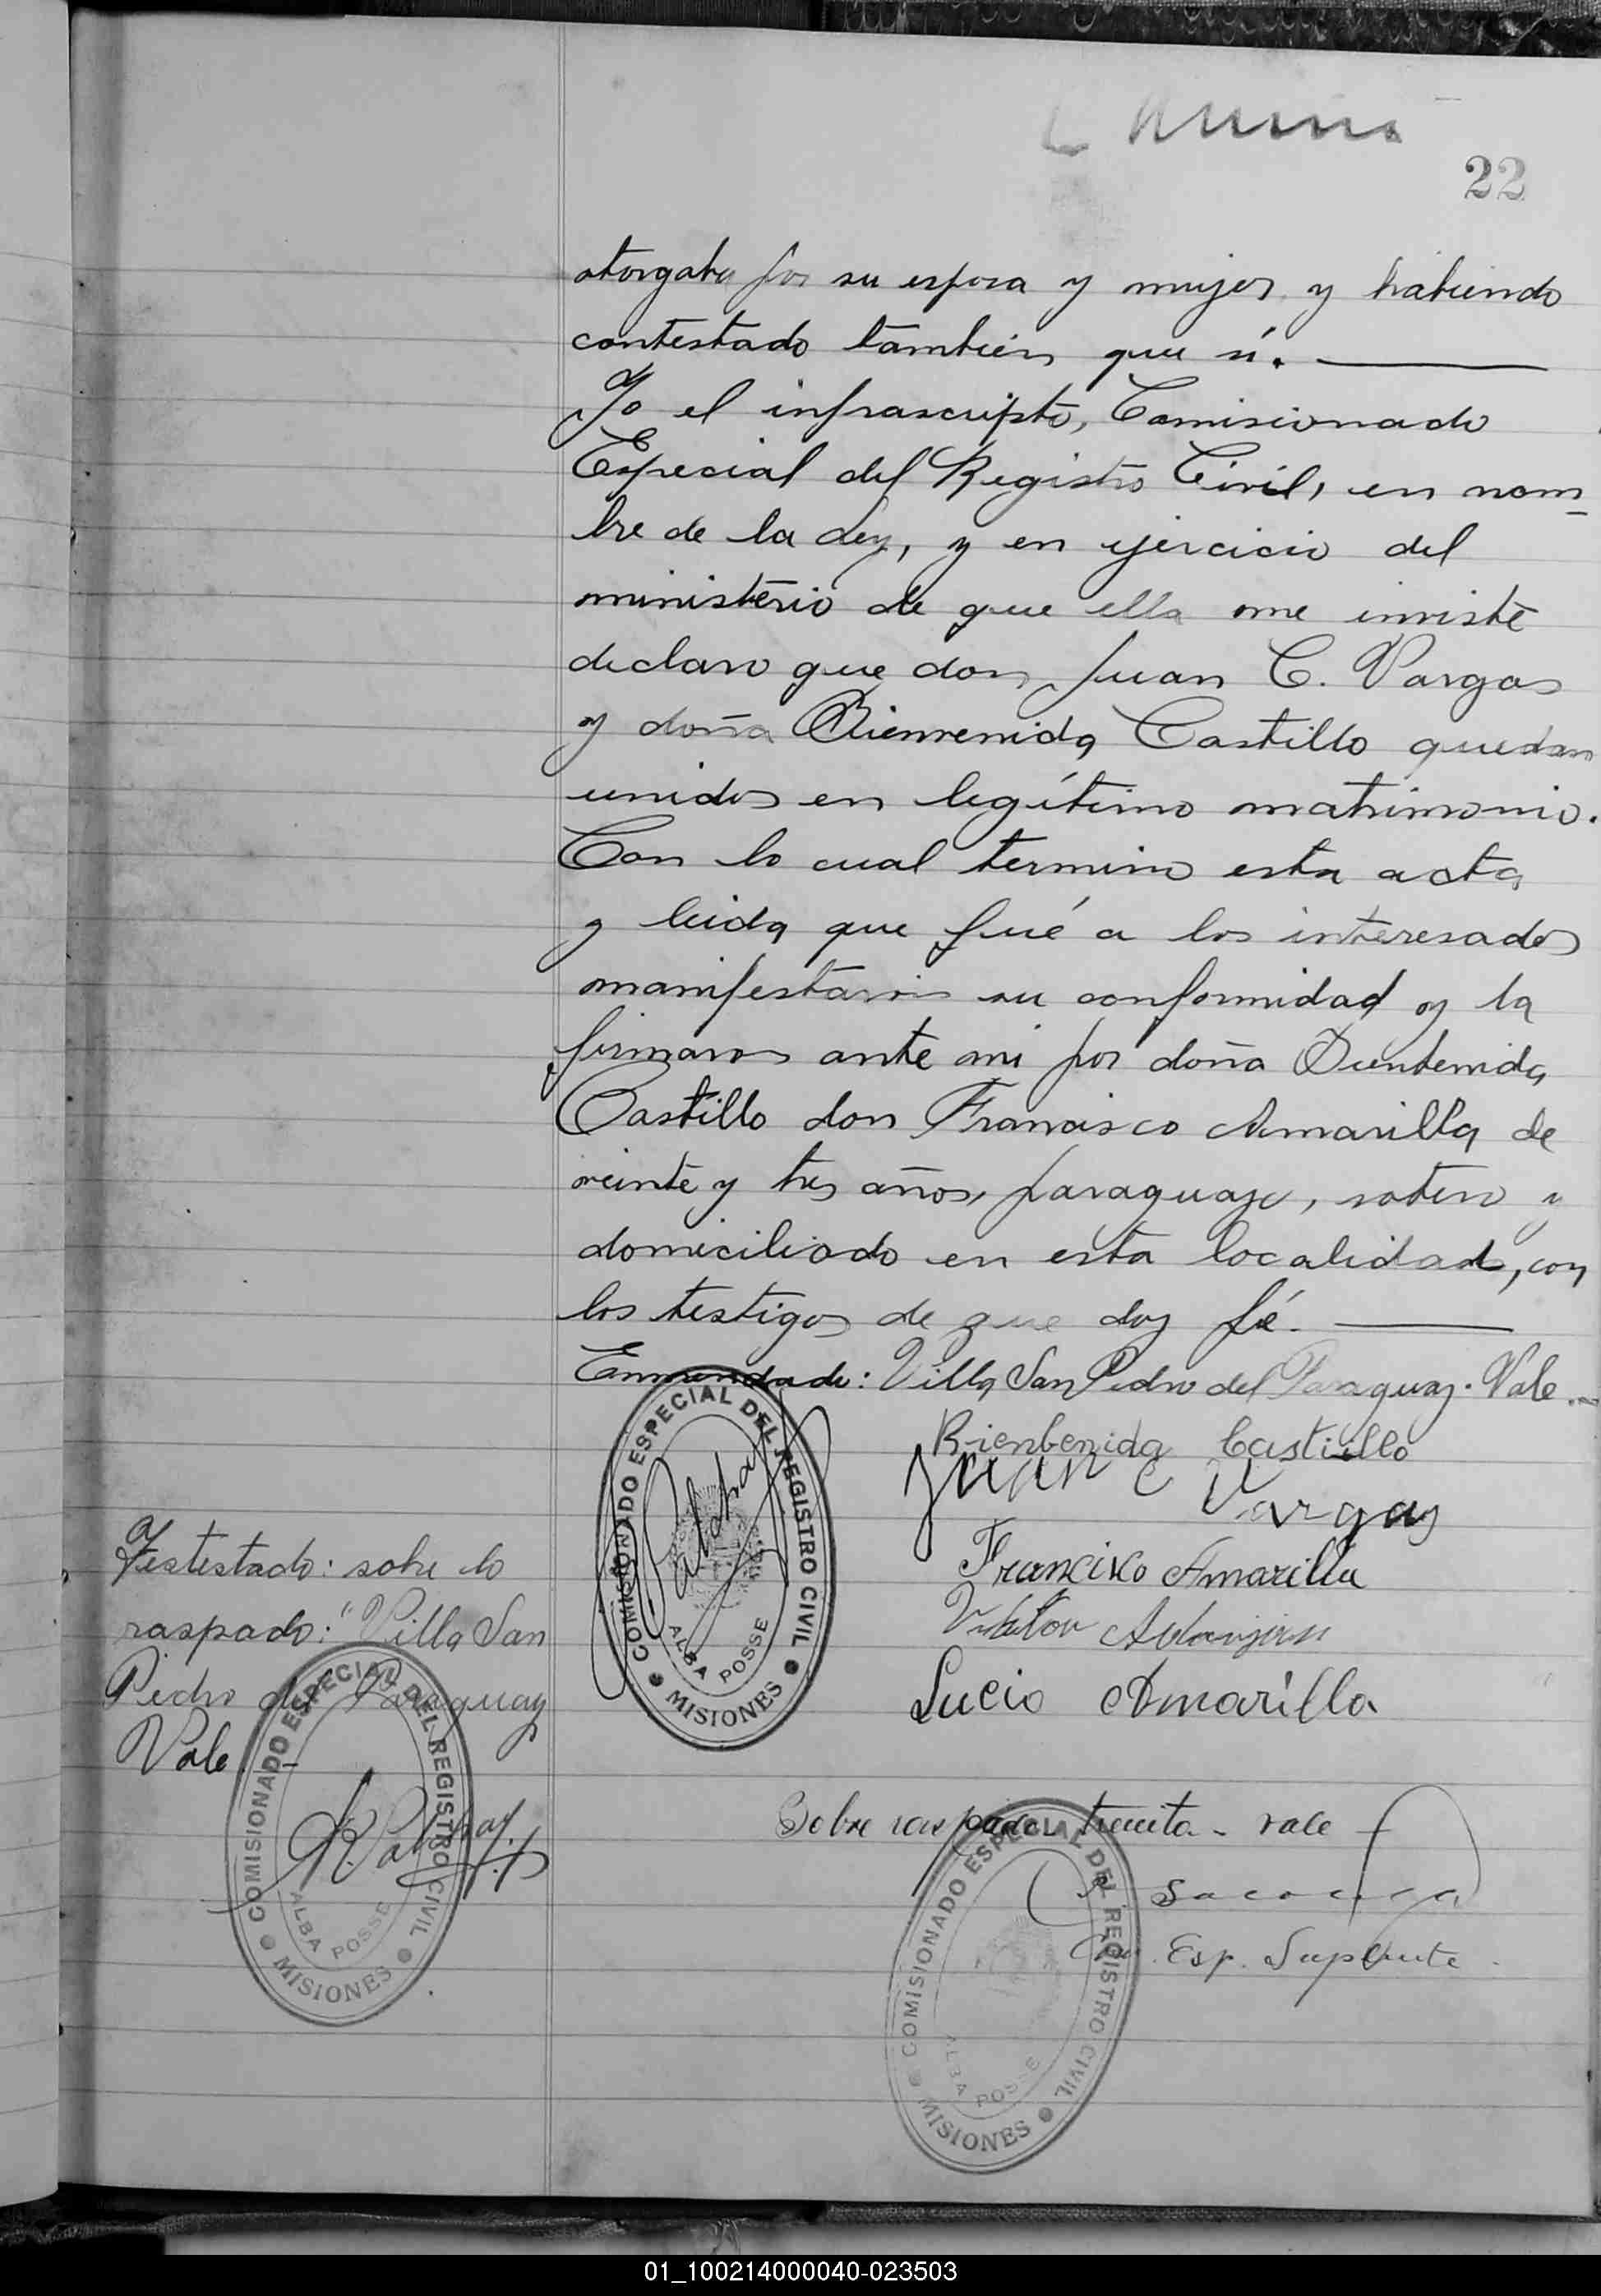 22
otorgaba por su esposa y mujer y habiendo
contestado tambien que sí.
Yo el infrascripto, Comisionado
Especial del Registro Civil, en nom_
bre de la Ley, y en ejercicio del
ministerio de que ella me inviste
declaro que don Juan C. Vargas
y doña Bienvenida Castillo quedan
unidos en legítimo matrimonio.
Con lo cual termino esta acta
y leida que fué a los interesados
manifestaron su conformidad y la
firmaron ante mi por doña Bienbenida
Castillo don Francisco Amarilla de
veinte y tres años, paraguayo, soltero y
domiciliado en esta localidad, con
los testigos de que doy fé.
Enmendado: Villa San Pedro del Paraguay. Vale.
Bienbenida Castillo
Juan C Vargas
Francisco Amarilla
Lucio Amarilla
COMISIONADO ESPECIAL DEL REGISTRO CIVIL
ALBA POSSE
MISIONES
Testestado: sobre lo
raspado: "Villa San
Pedro del Paraguay
Vale.
COMISIONADO ESPECIAL DEL REGISTRO CIVIL
ALBA POSSE
MISIONES
Sobre raspado treinta - vale
Esp. Suplente
COMISIONADO ESPECIAL DEL REGISTRO CIVIL
ALBA POSSE
MISIONES
01_100214000040-023503